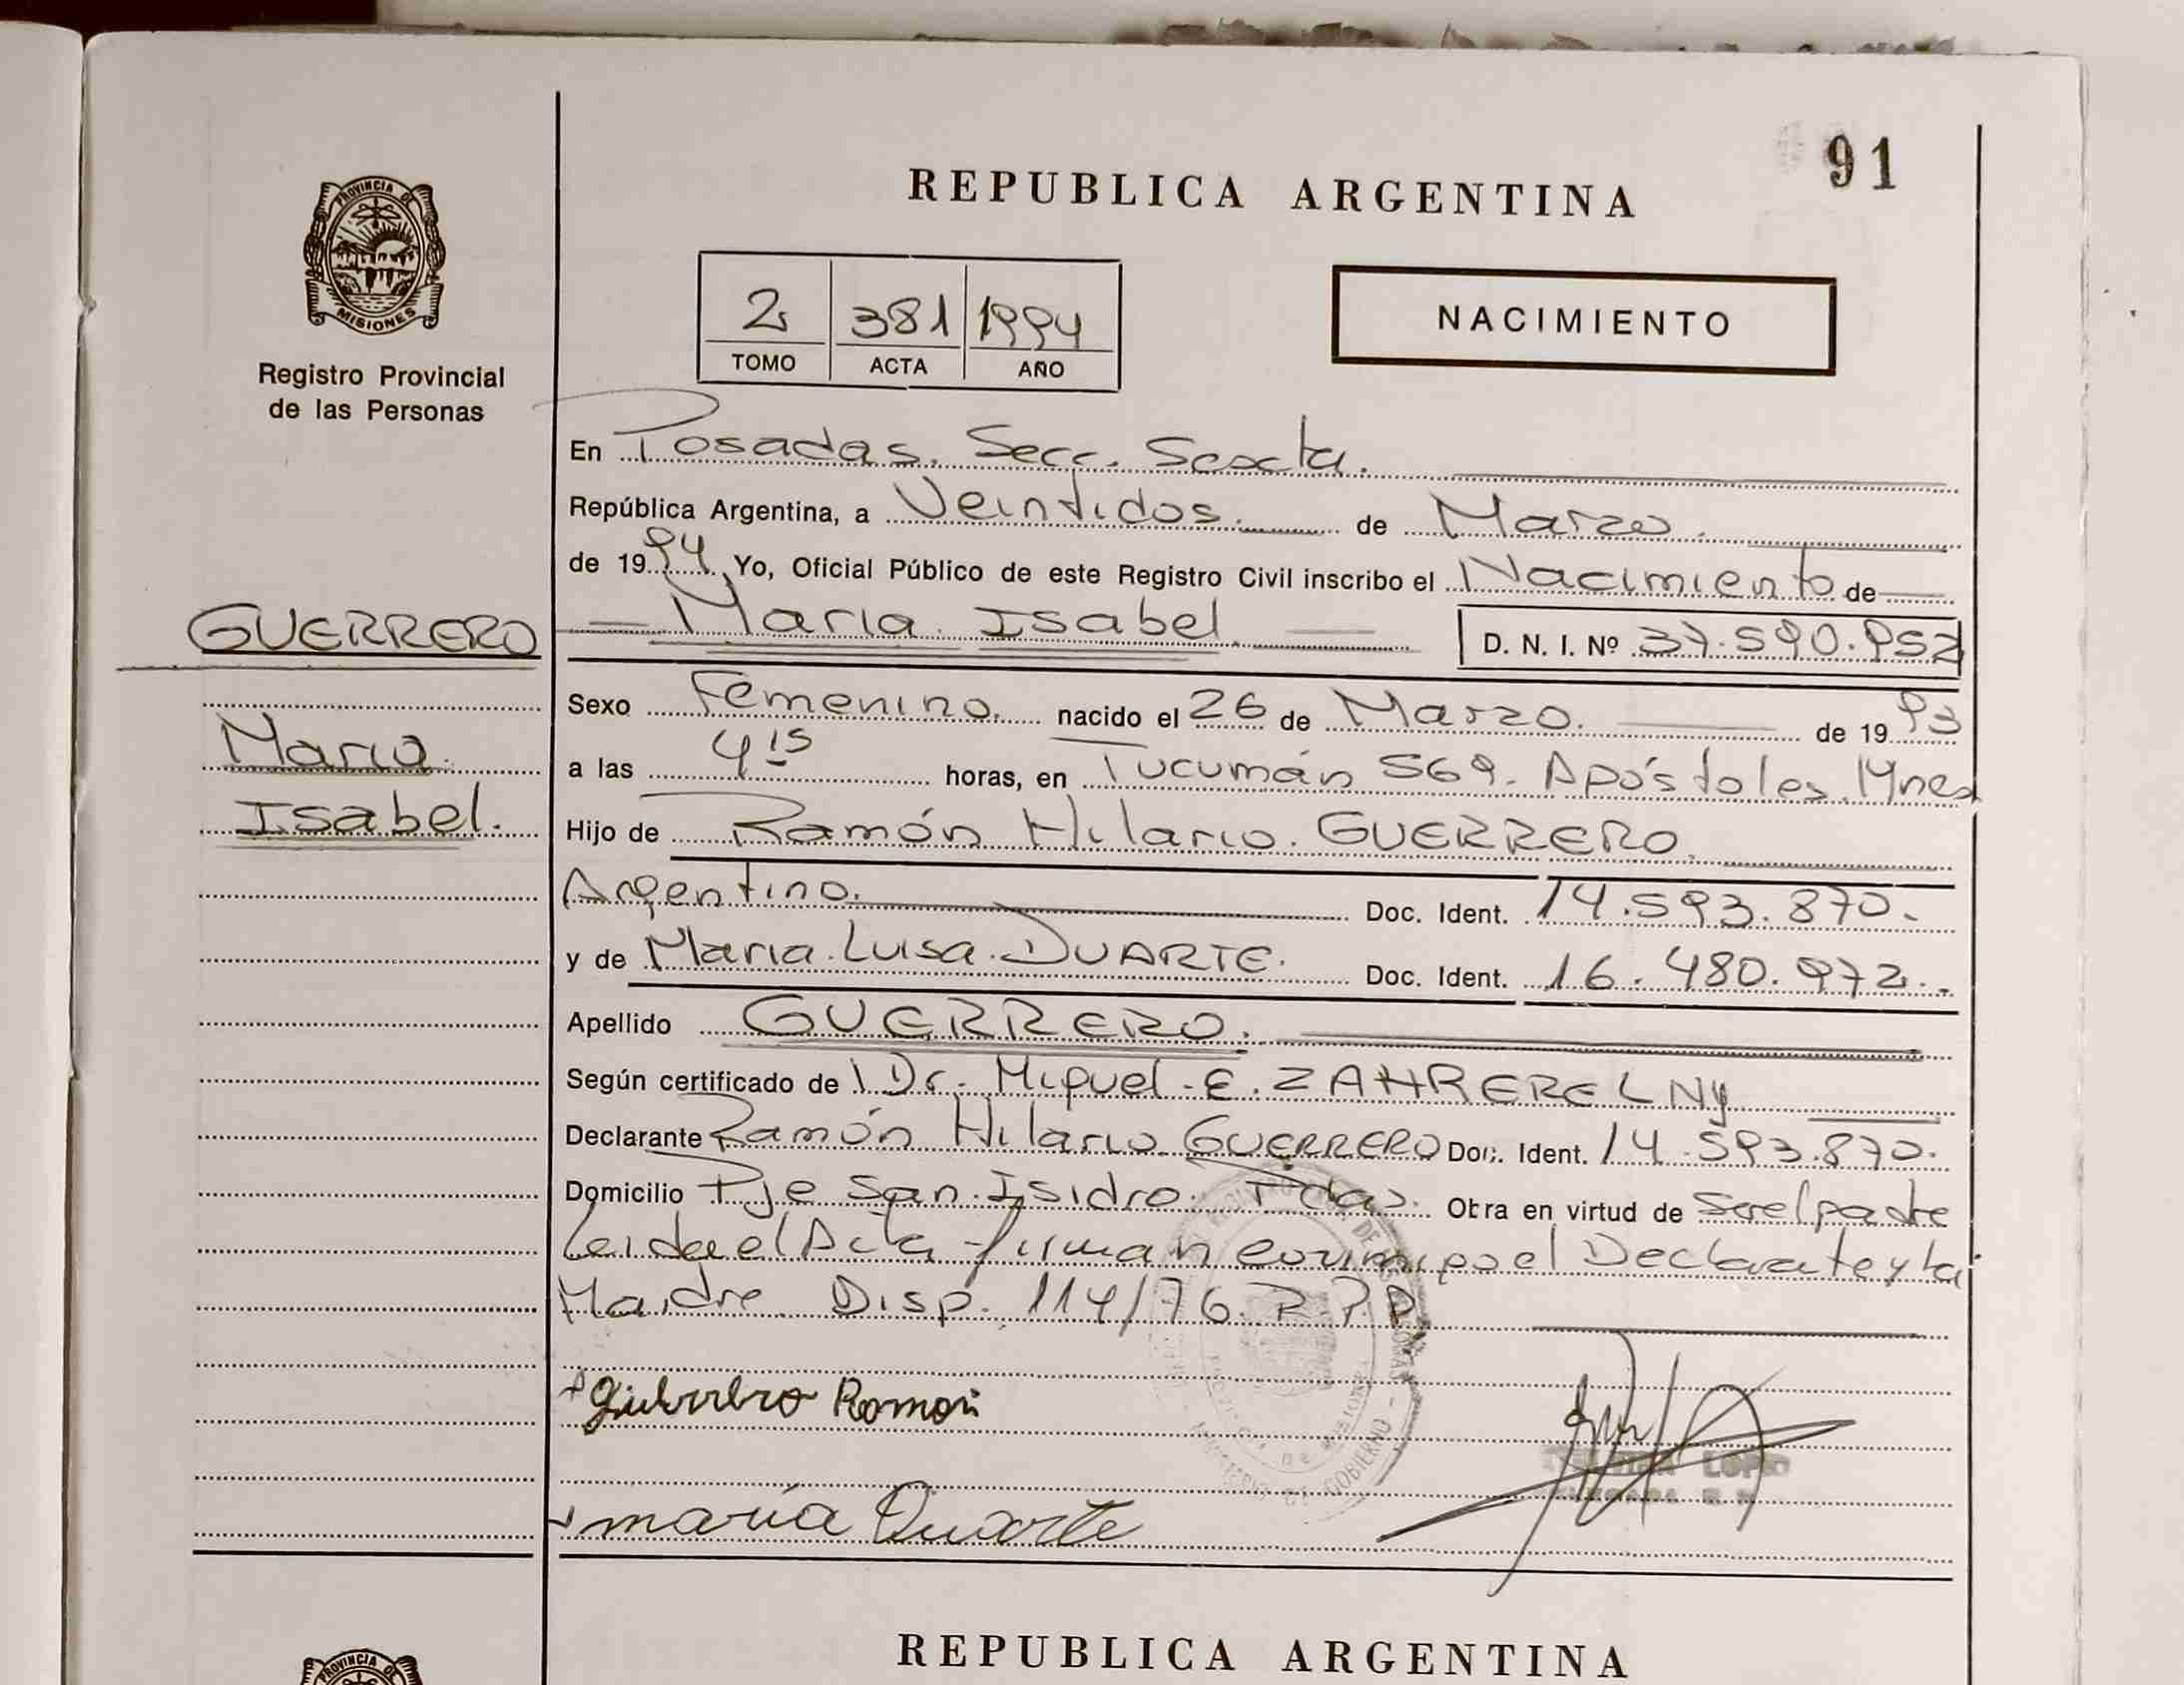 91
REPUBLICA ARGENTINA
PROVINCIA DE
MISIONES
Registro Provincial
de las Personas
2 381 1994
TOMO ACTA AÑO
NACIMIENTO
En Posadas. Secc. Sexta.
República Argentina, a Veintidos de Marzo.
de 1994 Yo, Oficial Público de este Registro Civil inscribo el Nacimiento de
GUERRERO
Maria Isabel D. N. I. Nº 37.590.952
Sexo Femenino. nacido el 26 de Marzo. de 1993
Maria
a las 4 15 horas, en Tucumán 569. Apóstoles. Mnes
Isabel.
Hijo de Ramón Hilario. GUERRERO.
Argentino. Doc. Ident. 14.593.870.
y de Maria Luisa DUARTE. Doc. Ident. 16.480.972.
Apellido GUERRERO.
Según certificado de Dr. Miguel E.
Declarante Ramón Hilario GUERRERO Doc. Ident. 14.593.870.
Domicilio Pje San Isidro. Pdas. Obra en virtud de Ser el padre
Leida el Acta firman conmigo el Declarate y la
Madre Disp. 114/76. R.P.P.
Guerrero Ramón
maría Duarte
REPUBLICA ARGENTINA
PROVINCIA DE